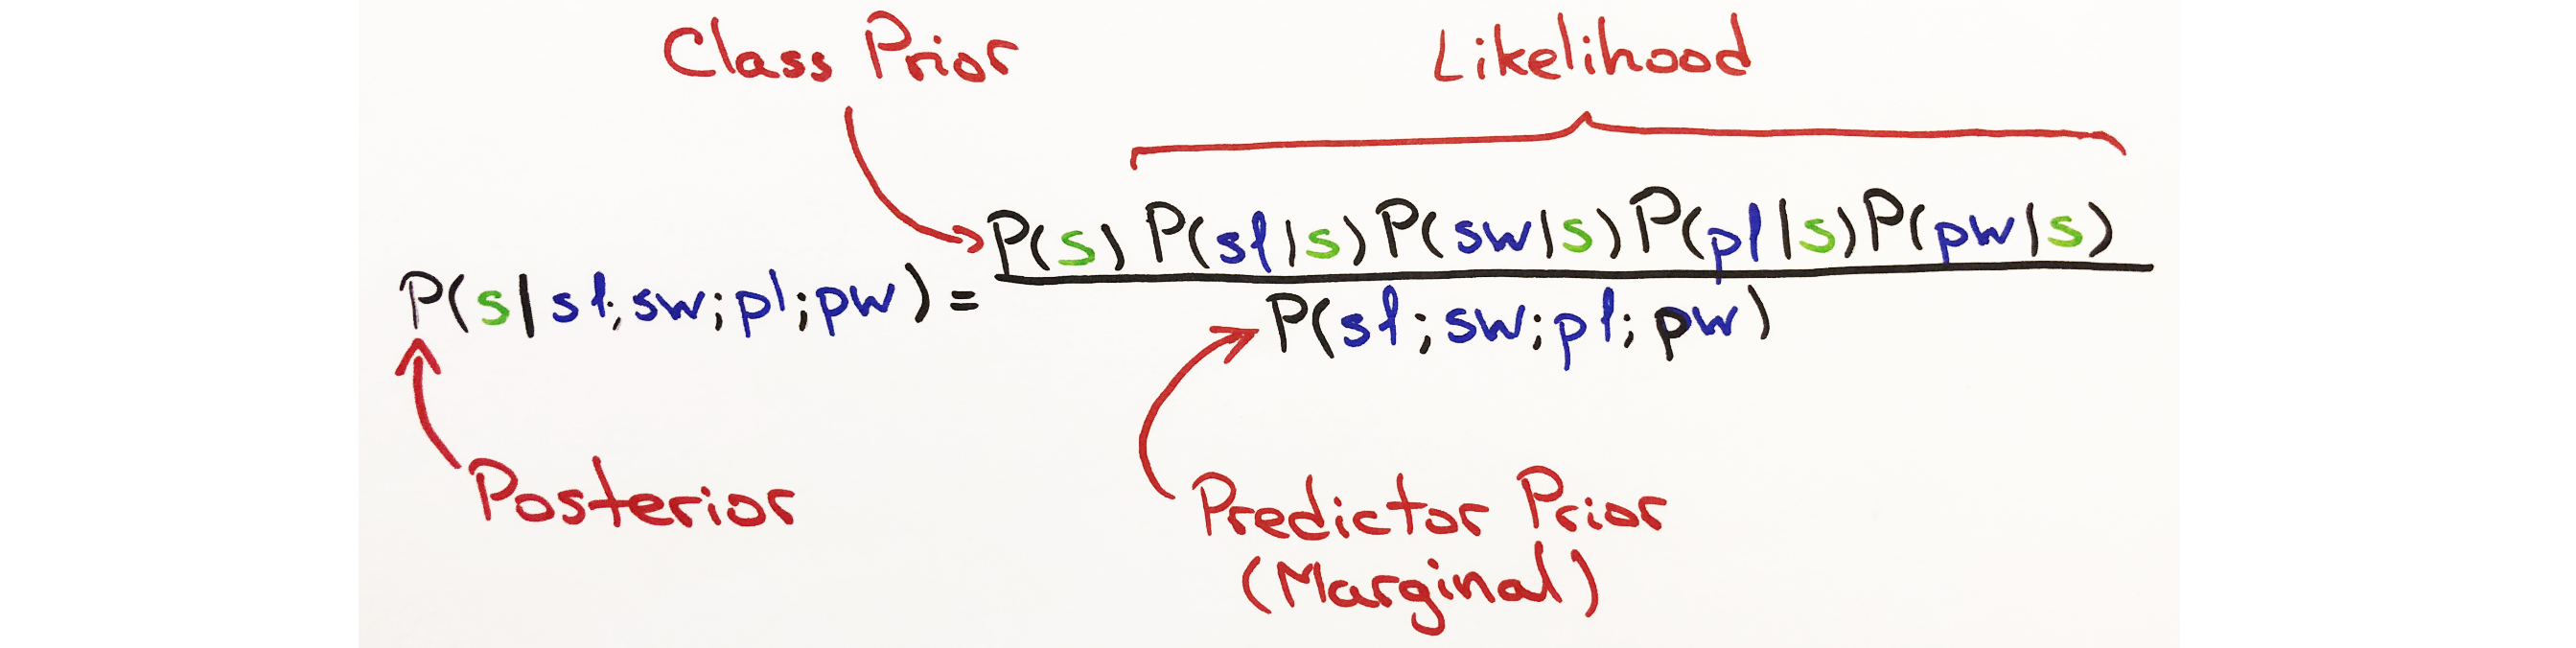 Class Prior
Likelihood
P(s) P(sl|s) P(sw|s) P(pl|s) P(pw|s)
P(s|sl;sw;pl;pw) =
P(sl;sw;pl;pw)
Posterior
Predictor Prior
(Marginal)